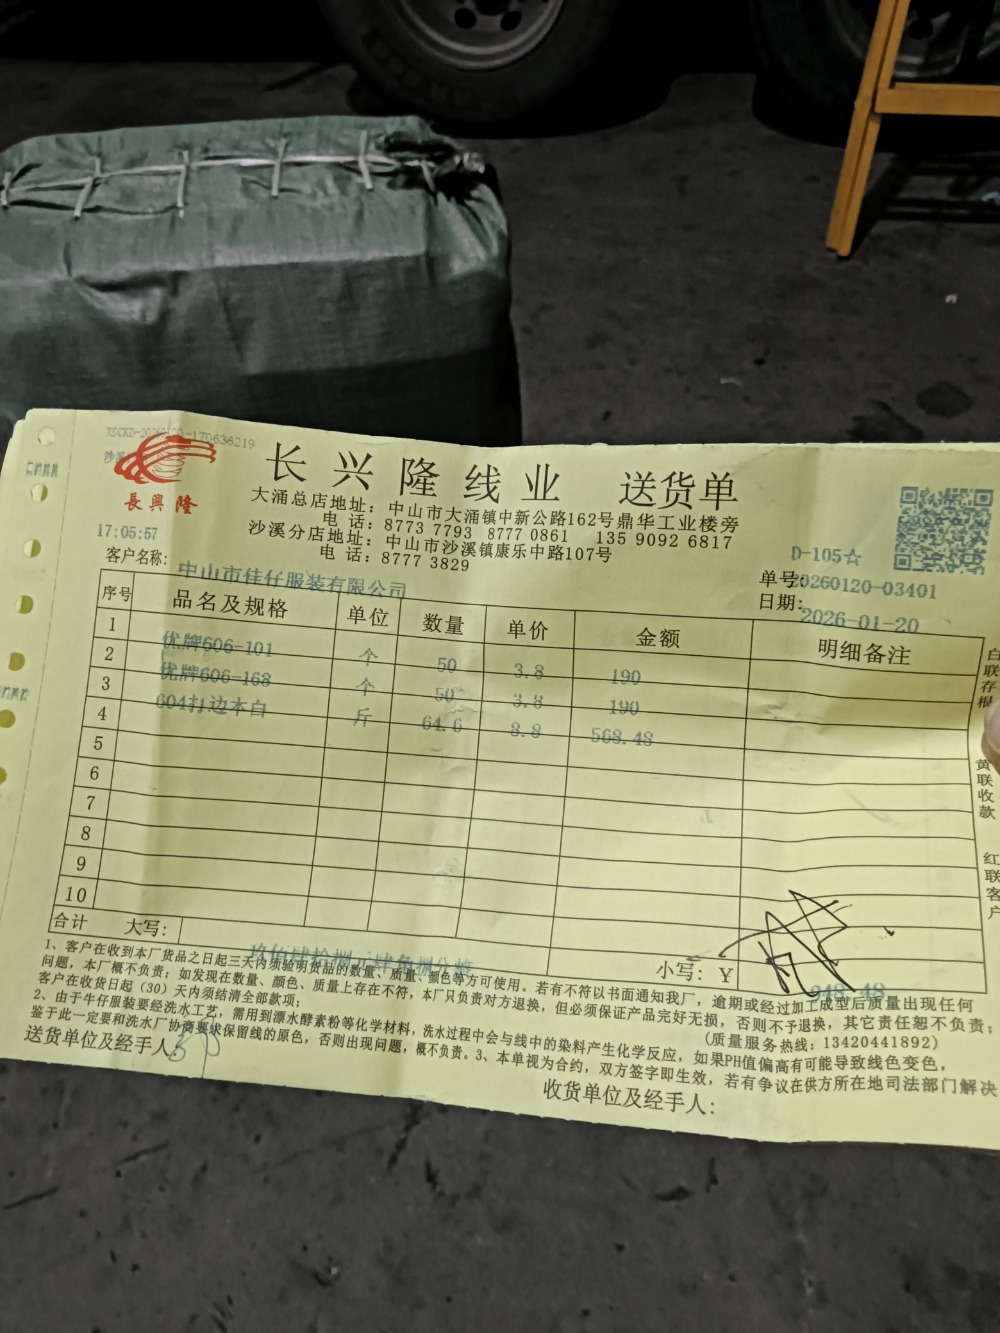 長興隆
长兴隆线业 送货单
大涌总店地址：中山市大涌镇中新公路162号鼎华工业楼旁
电 话：8773 7793 8777 0861 135 9092 6817
沙溪分店地址：中山市沙溪镇康乐中路107号
电 话：8777 3829
17:05:57
D-105☆
客户名称：中山市佳仔服装有限公司
单号：20260120-03401
日期：2026-01-20
序号 品名及规格 单位 数量 单价 金额 明细备注
1 优牌606-101 个 50 3.8 190
2 优牌606-168 个 50 3.8 190
3 604打边本白 斤 64.6 8.8 568.48
4
5
6
7
8
9
10
合计 大写：玖佰肆拾捌元肆角捌分整 小写：Y 948.48
白联存根
黄联收款
红联客户
1、客户在收到本厂货品之日起三天内须验明货品的数量、质量、颜色等方可使用。若有不符以书面通知我厂，逾期或经过加工成型后质量出现任何
问题，本厂概不负责；如发现在数量、颜色、质量上存在不符，本厂只负责对方退换，但必须保证产品完好无损，否则不予退换，其它责任恕不负责；
客户在收货日起（30）天内须结清全部款项；（质量服务热线：13420441892）
2、由于牛仔服装要经洗水工艺，需用到漂水酵素粉等化学材料，洗水过程中会与线中的染料产生化学反应，如果PH值偏高有可能导致线色变色，
鉴于此一定要和洗水厂协商要求保留线的原色，否则出现问题，概不负责。3、本单视为合约，双方签字即生效，若有争议在供方所在地司法部门解决
送货单位及经手人：
收货单位及经手人：